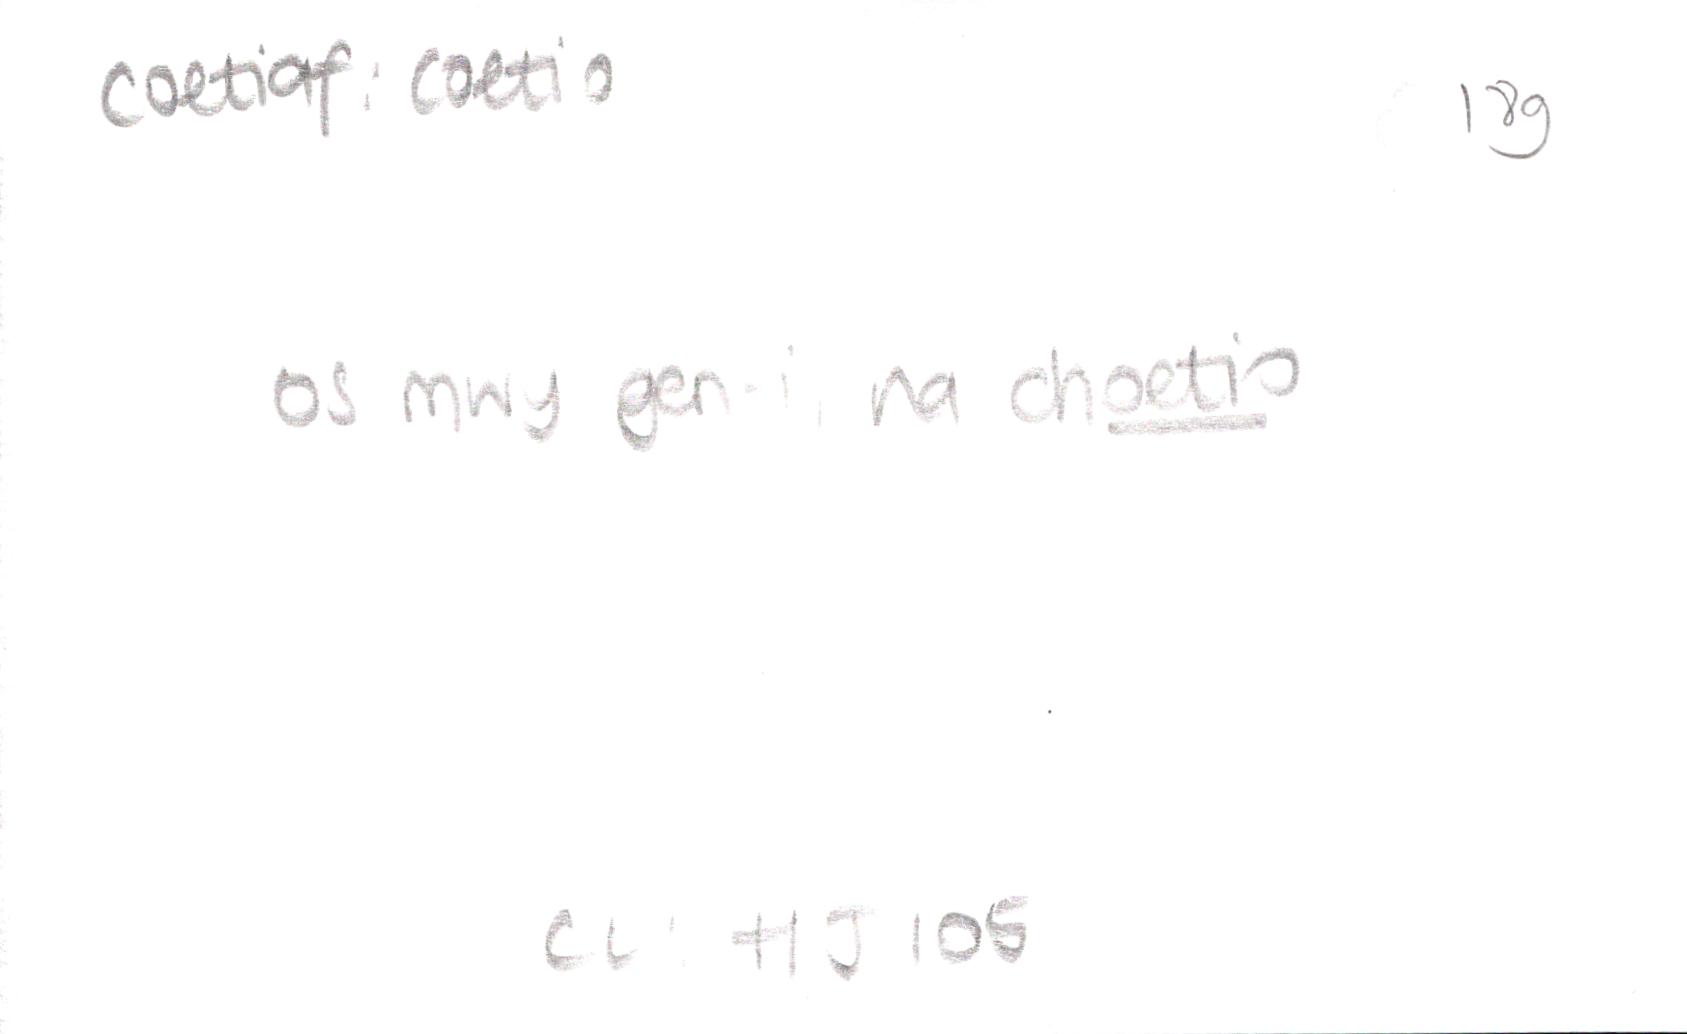 coetiaf: coetio
189
os mwy gen-i, na choetio
CL: HJ 105